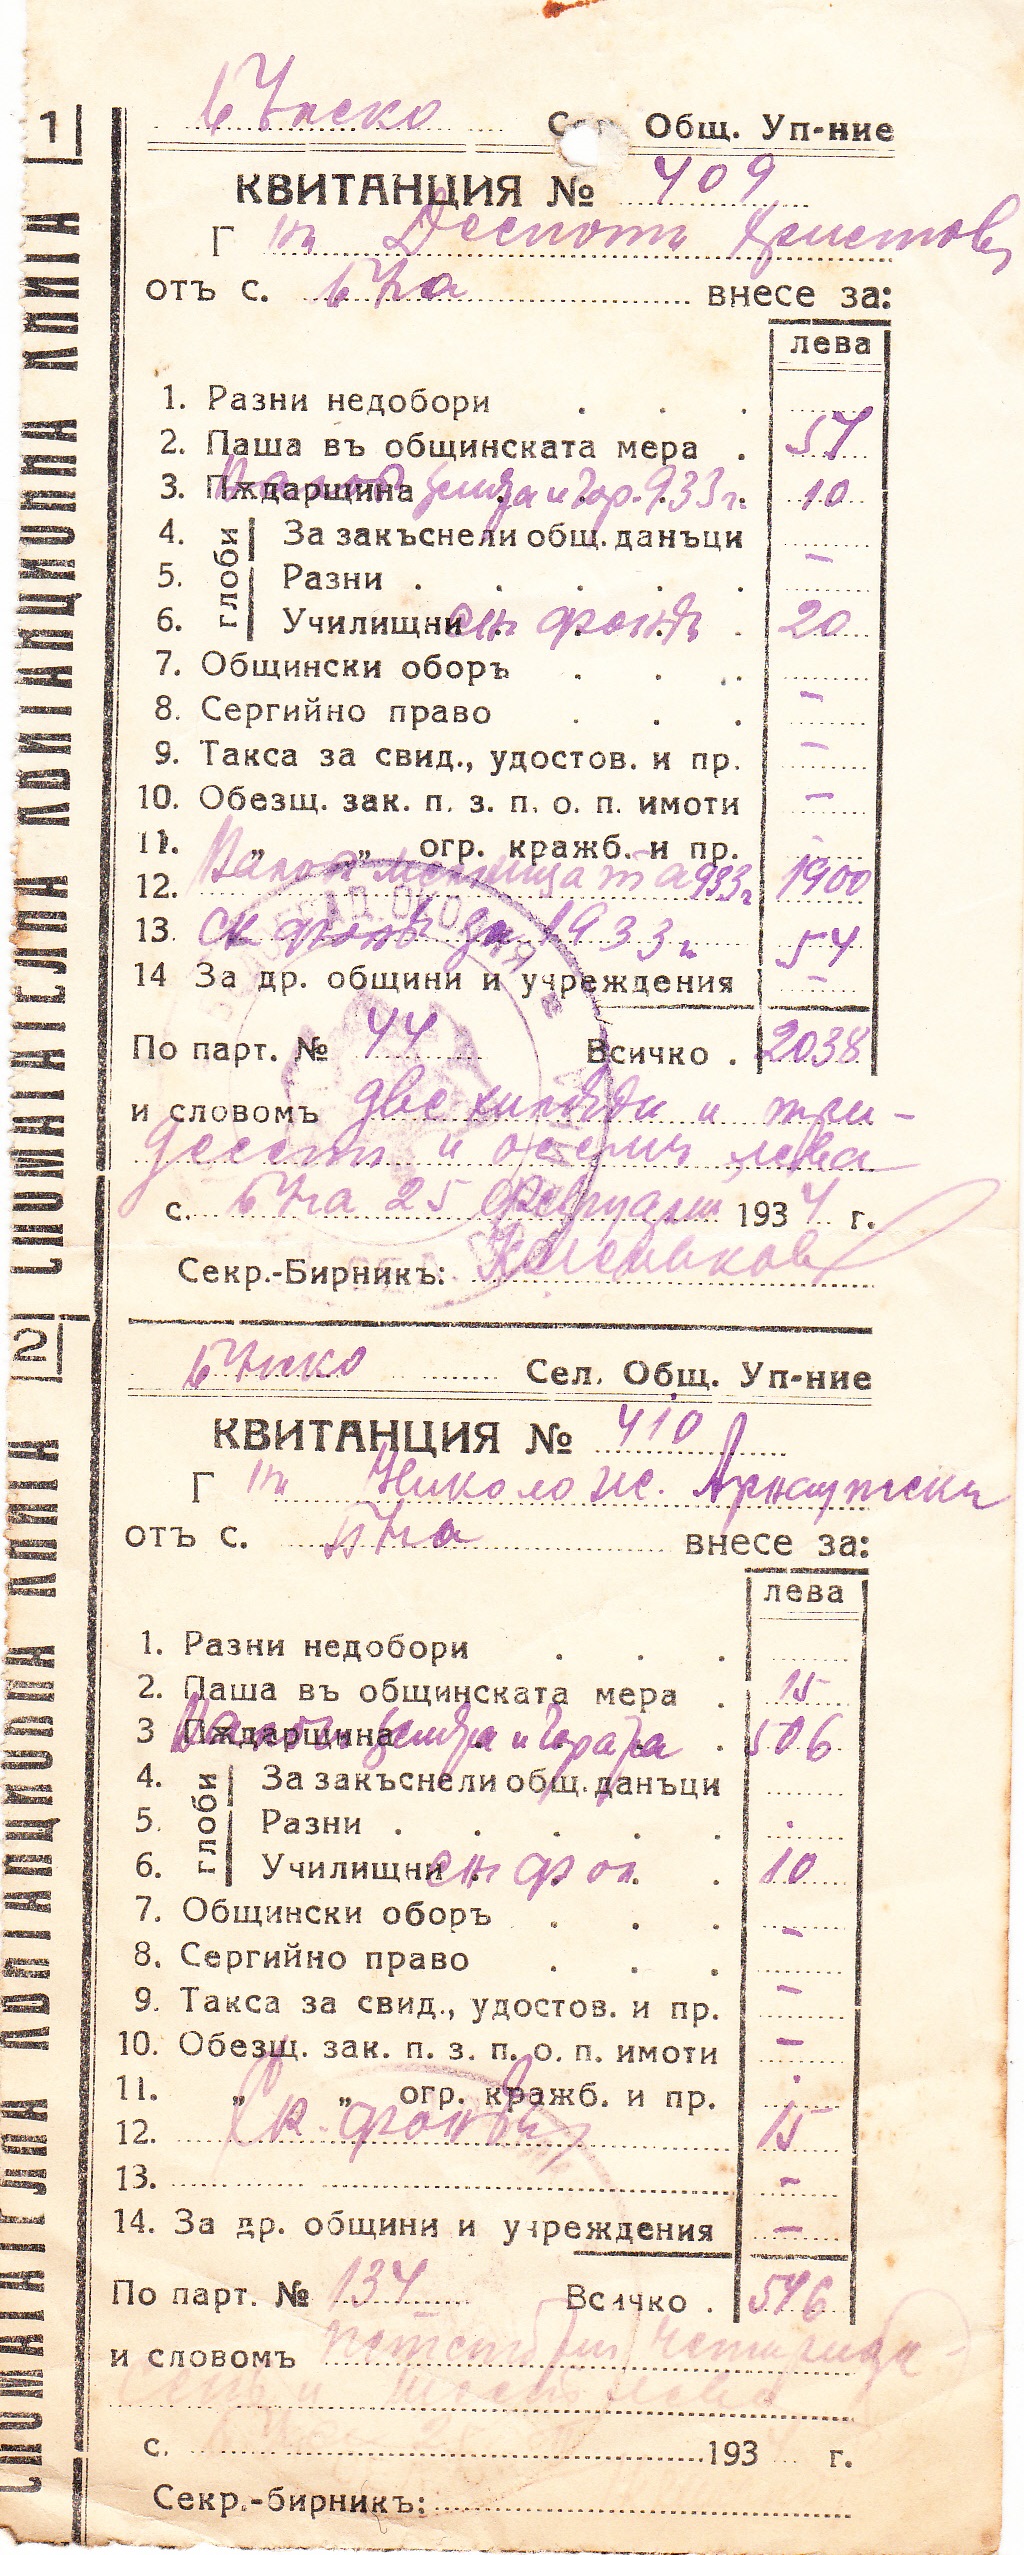 1
Общ. Уп-ние
КВИТАНЦИЯ № 409
Г Деспотъ Христовъ
отъ с. внесе за:
лева
1. Разни недобори
2. Паша въ общинската мера . 54
3. Пѫдарщина 933 г. 10
4. За закъснели общ. данъци
глоби
5. Разни . –
6. Училищни фондъ 20
7. Общински оборъ
8. Сергийно право –
9. Такса за свид., удостов. и пр. –
10. Обезщ. зак. п. з. п. о. п. имоти –
11. „ „ огр. кражб. и пр.
12. 933 г 1900
13. ск фондъ за 1933 г. 54
14 За др. общини и учреждения –
По парт. № 44 Всичко . 2038
и словомъ две хиляди и три-
десетъ и осемь лева
с. 25 Февруари 1934 г.
Секр.-Бирникъ:
2
Сел. Общ. Уп-ние
КВИТАНЦИЯ № 410
Г Никола Ис. Арнаутски
отъ с. внесе за:
лева
1. Разни недобори
2. Паша въ общинската мера . 15
3 Пѫдарщина . 506
4. За закъснели общ. данъци
глоби
5. Разни .
6. Училищни фон. 10
7. Общински оборъ –
8. Сергийно право
9. Такса за свид., удостов. и пр. –
10. Обезщ. зак. п. з. п. о. п. имоти –
11. „ „ огр. кражб. и пр.
12. Ск. фондъ 15
13. –
14. За др. общини и учреждения –
По парт. № 134 Всичко . 546
и словомъ петстотин четиридесе
лева
с. 193 г.
Секр.-бирникъ: